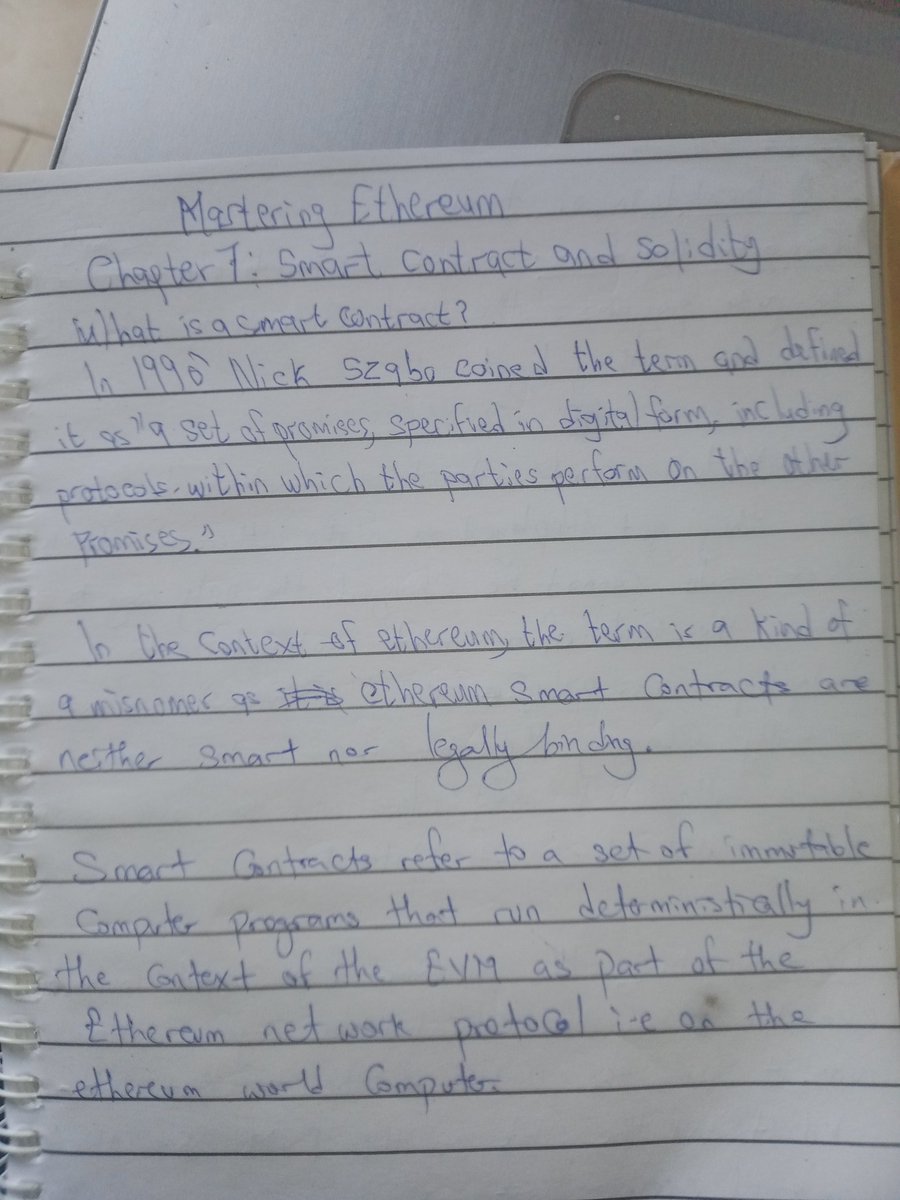 Mastering Ethereum
Chapter 7: Smart Contract and Solidity
What is a smart contract?
In 1996 Nick Szabo coined the term and defined
it as "a set of promises, specified in digital form, including
protocols within which the parties perform on the other
Promises."
In the Context of ethereum, the term is a kind of
a misnomer as it is ethereum Smart Contracts are
neither Smart nor legally binding.
Smart Contracts refer to a set of immutable
Computer programs that run deterministically in
the Context of the EVM as part of the
Ethereum network protocol i-e on the
ethereum world Computer.